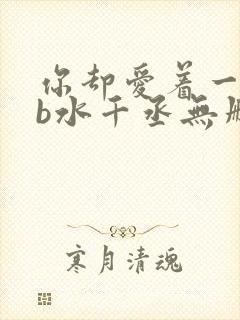 你却爱着一
b水干丞無刪
寒月清魂